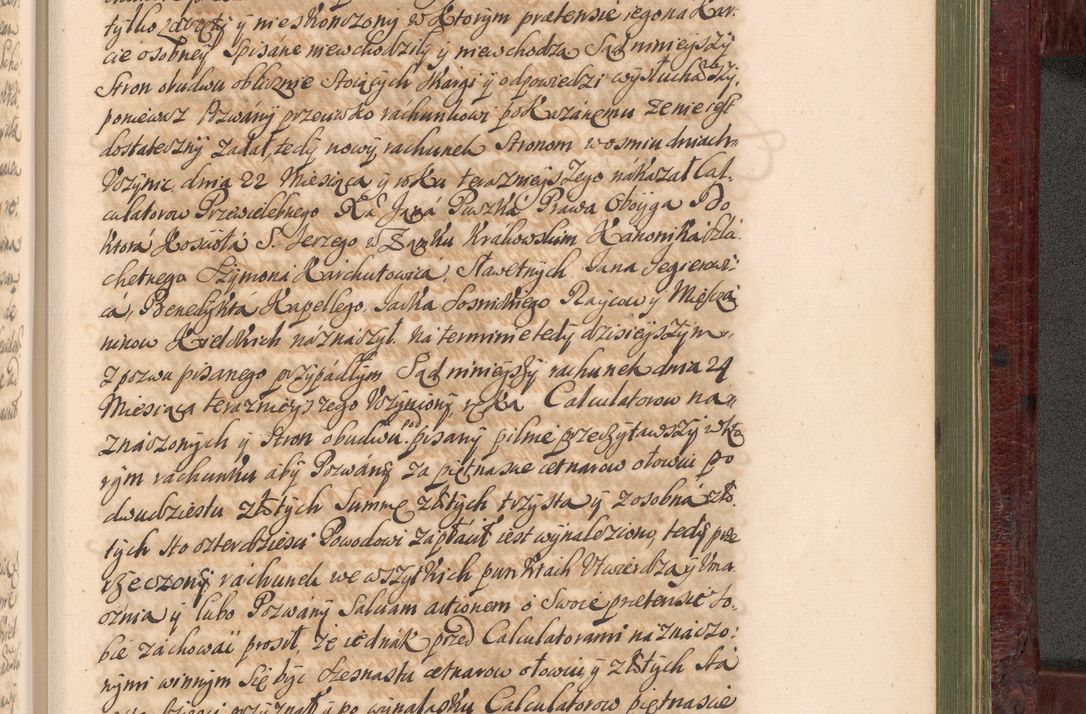 tylko zaczęty y nieskonczony w ktorym pretensie iego na Kar-
cie osobney spisane niewchodziły y niewchodzą Sąd ninieyszy
Stron obudwu oblicznie stoiących skargi y odpowiedzi wysłuchawszy
poniewasz Pozwany przeciwko rachunkowi pokazanemu ze nie iest
dostateczny zadał, tedy nowy rachunek Stronom w osmiu dniach
Uczynic dnia 22 Miesiąca y roku teraznieyszego nakazał Cal-
culatorow Przewielebnego Xa Jana Puszka Prawa Oboyga Do
ktora Koscioła S. Jerzego w Zamku Krakowskim Kanonika szla-
chetnego Szymona Karchutowica, Sławetnych Jana
ca, Benedykta Kapellego, Jacka Raycow y Miesza
ninow Kieleckich naznaczył. Na terminie tedy dzisieyszym
z pozwu pisanego przypadłym Sąd ninieyszy rachunek dnia 24
Miesiąca terazneyszego Uczyniony, ręką Calculatorow na-
znaczonych y Stron obudwu podpisany pilnie przeczytawszy w kto
rym rachunku aby Pozwany za piętnascie cetnarow ołowiu po
dwudziestu złotych summę złotych trzysta y zosobna zło
tych sto czterdziesci Powodowi zapłacił iest wynaleziono, tedy prze
rzeczony rachunek we wszytkich punktach Utwierdza y Uma
cznia y lubo Pozwany Salvam actionem o Swoie pretensie so-
bie zachowac prosił, że iednak przed Calculatorami naznaczo-
nymi winnym się byc szesnastu cetnarow ołowiu y złotych sta
przyznał y po wynalasku Calculatorow piętnascie